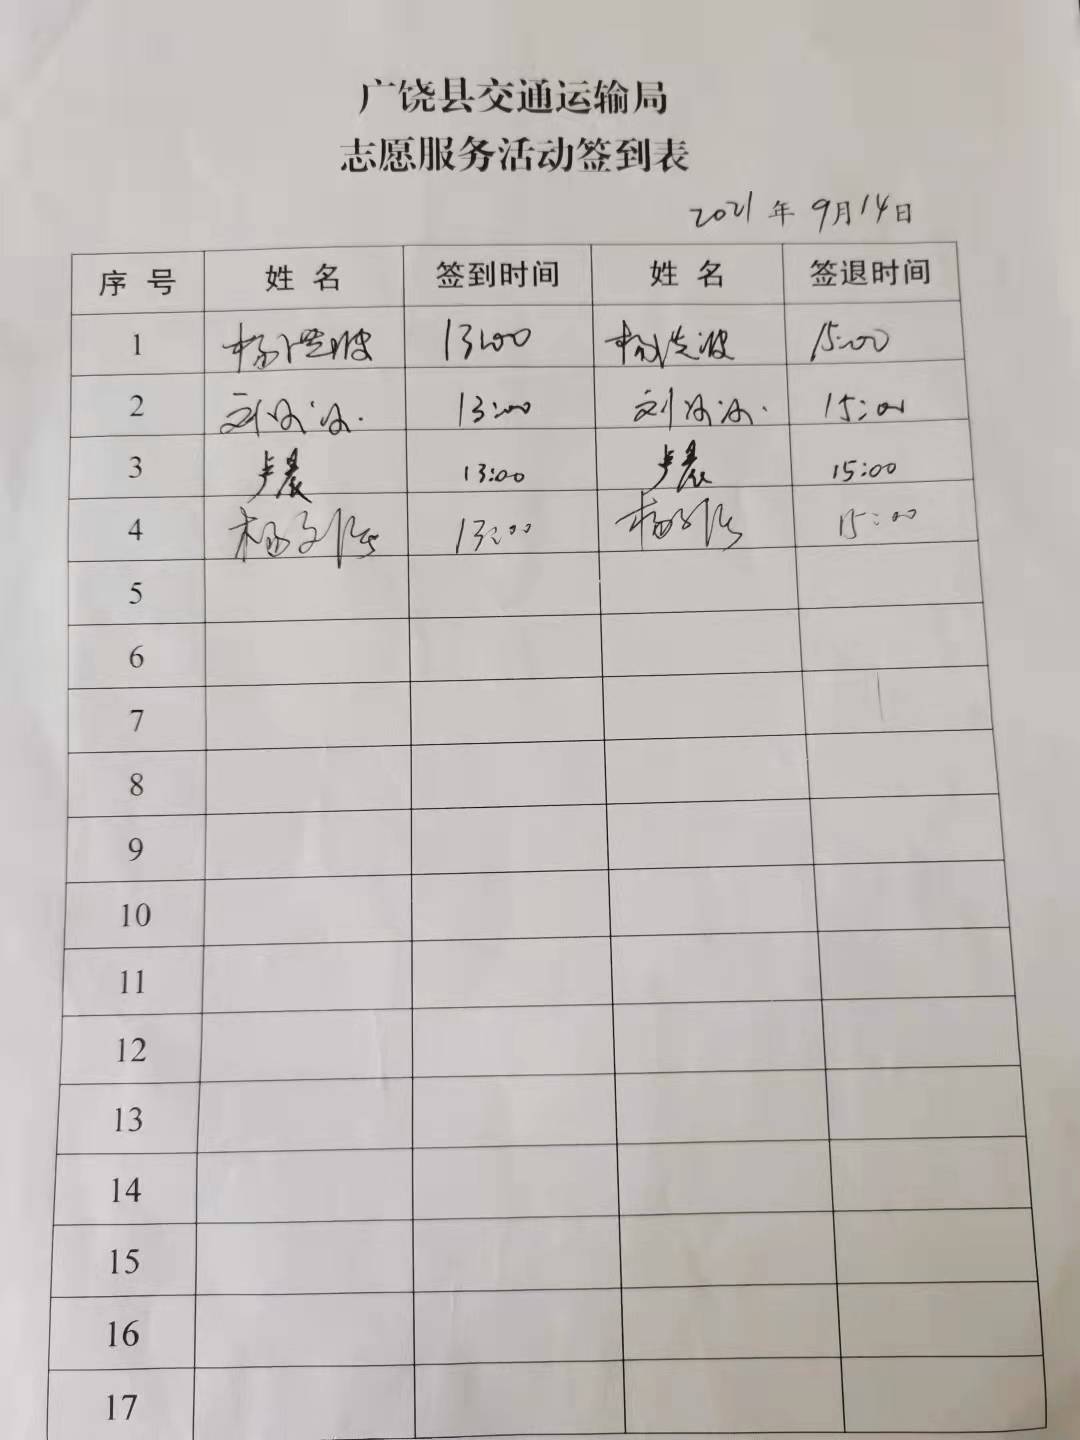 广饶县交通运输局
志愿服务活动签到表
2021年9月14日
序号 姓名 签到时间 姓名 签退时间
1 杨洪波 13:00 杨洪波 15:00
2 刘冰冰 13:00 刘冰冰 15:00
3 卢晨 13:00 卢晨 15:00
4 杨 13:00 杨 15:00
5
6
7
8
9
10
11
12
13
14
15
16
17